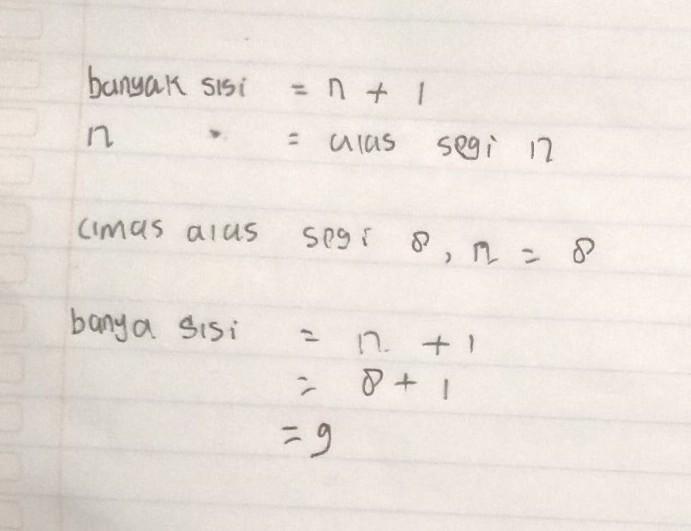 banyak sisi = n + 1
n = alas segi n
limas alas segi 8, n = 8
banya sisi = n + 1
= 8 + 1
= 9